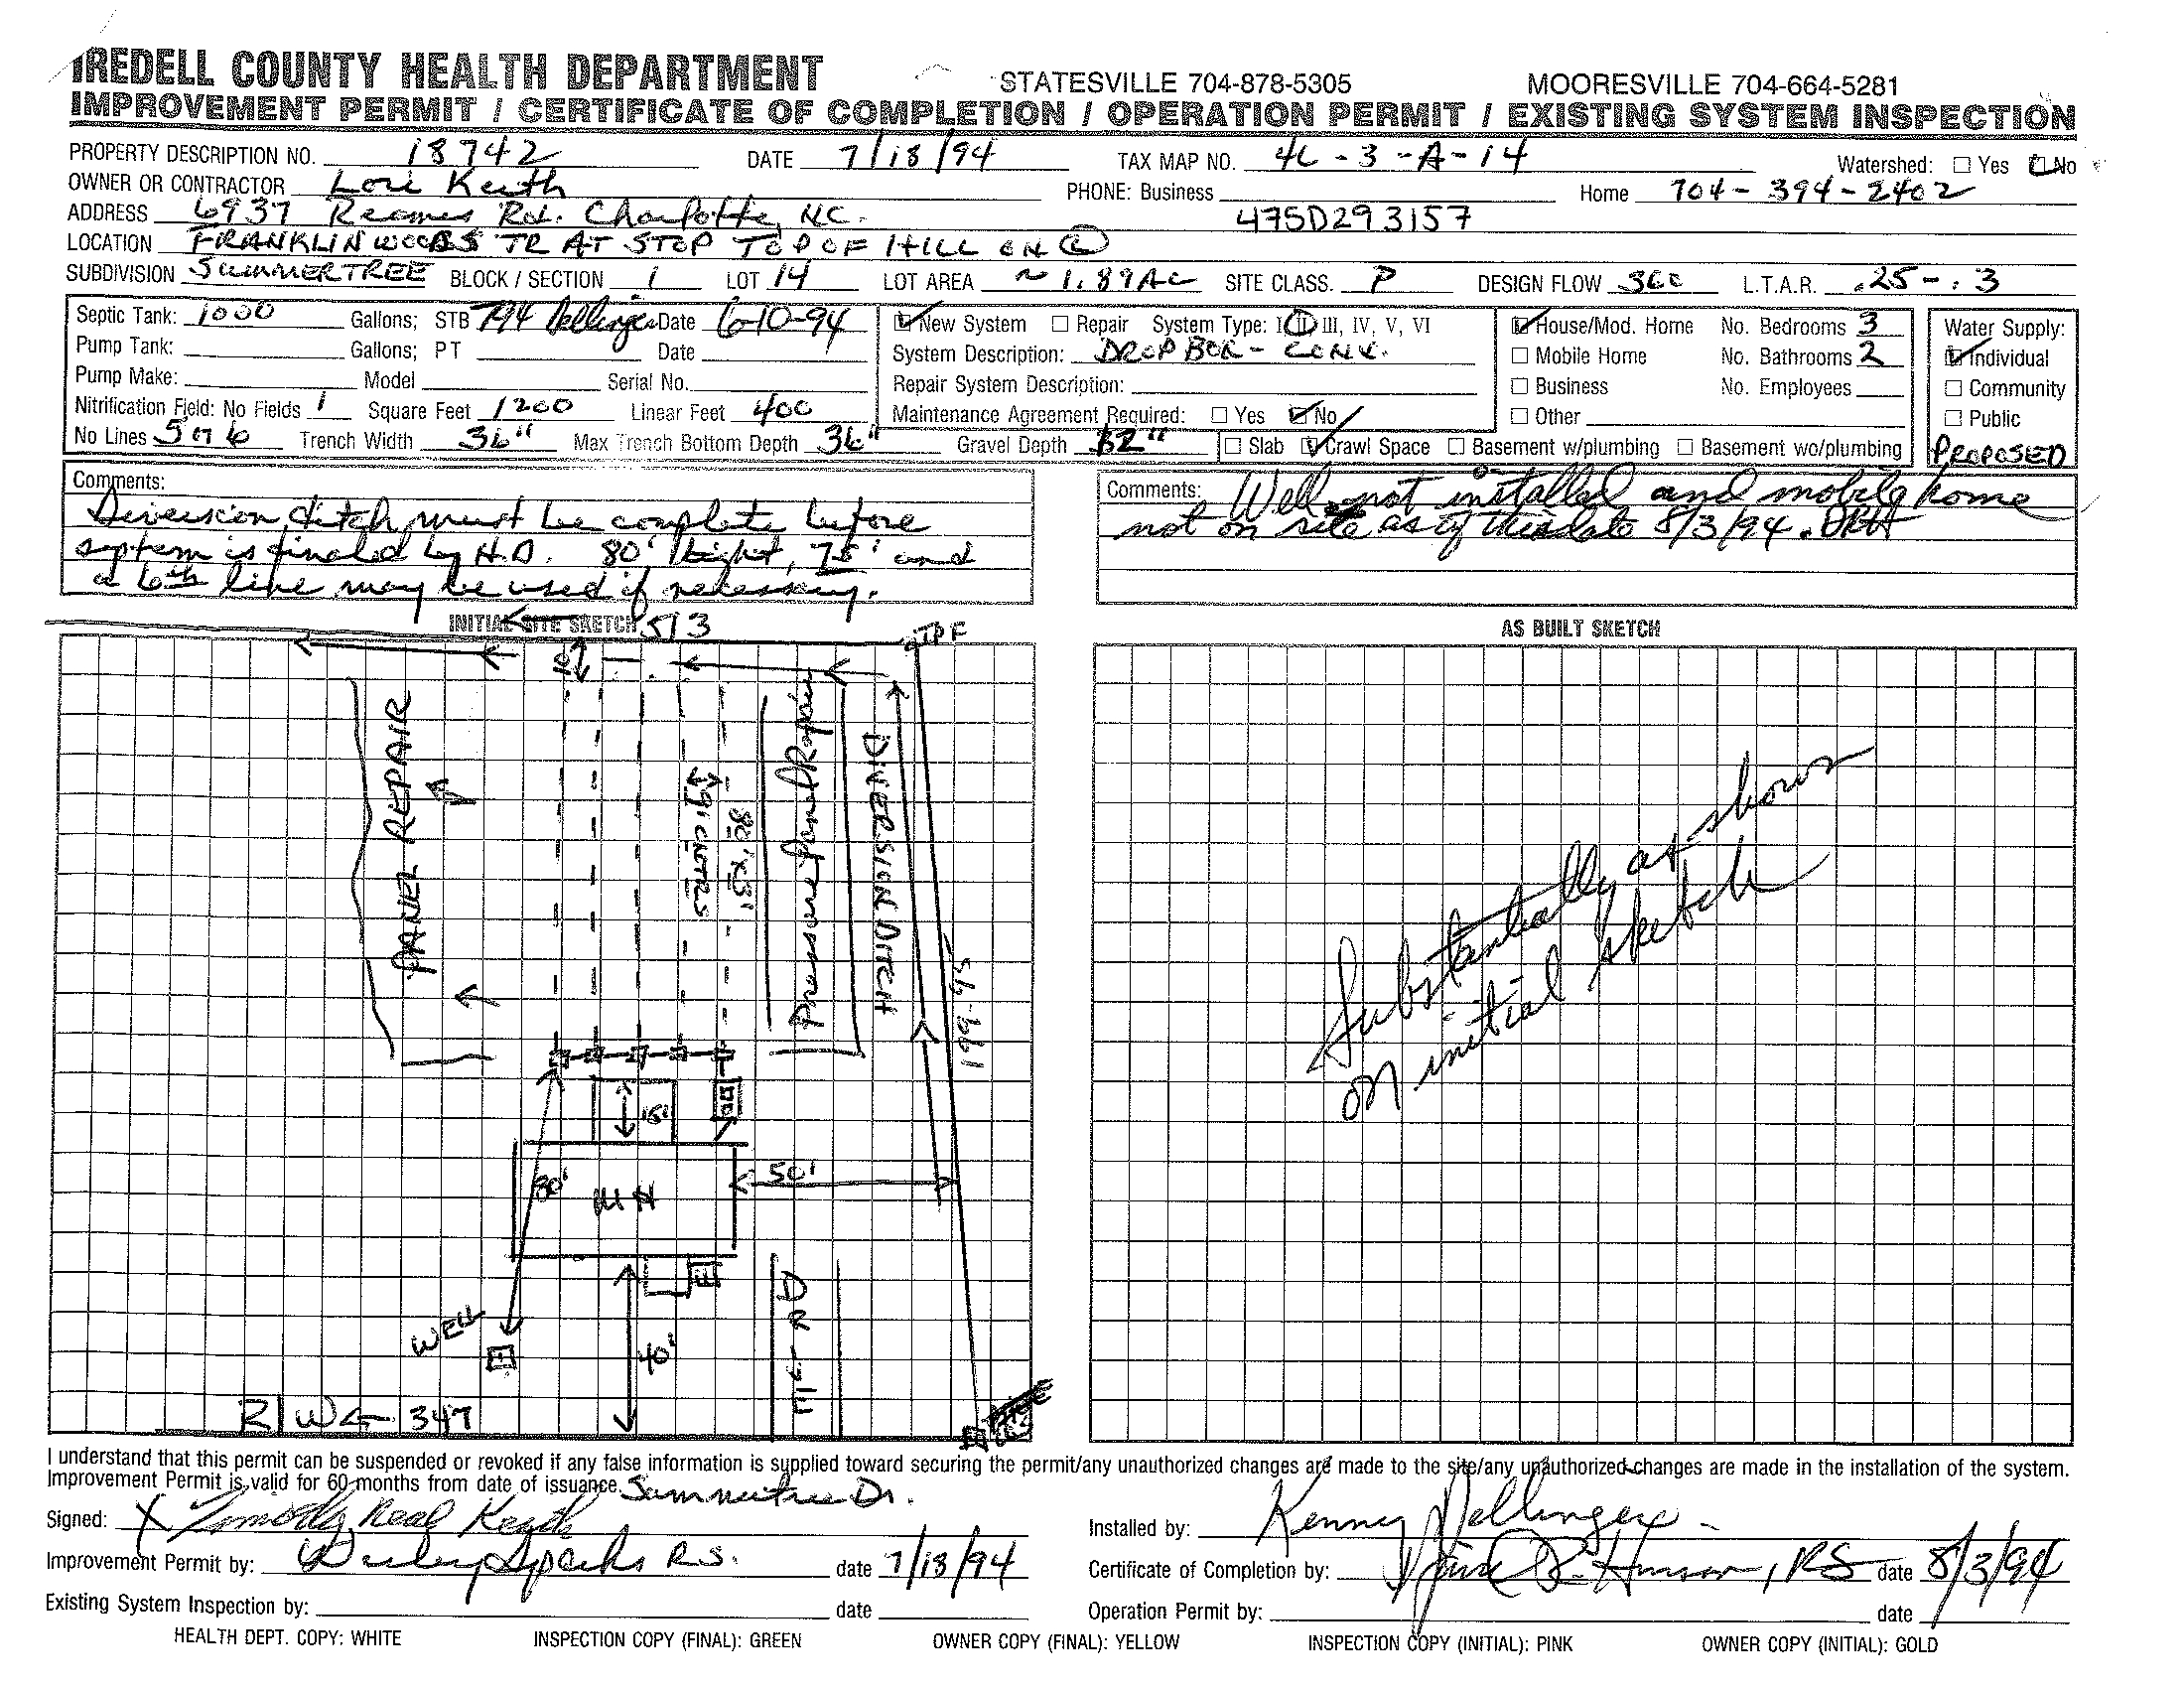 IREDELL COUNTY HEALTH DEPARTMENT STATESVILLE 704-878-5305 MOORESVILLE 704-664-5281
IMPROVEMENT PERMIT / CERTIFICATE OF COMPLETION / OPERATION PERMIT / EXISTING SYSTEM INSPECTION
PROPERTY DESCRIPTION NO. 18742 DATE 7/18/94 TAX MAP NO. 4L-3-A-14 Watershed: ☐ Yes ☑ No
OWNER OR CONTRACTOR Lori Keith PHONE: Business Home 704-394-2402
ADDRESS 6937 Reames Rd. Charlotte, NC. 475D293157
LOCATION FRANKLIN WOODS TR AT STOP TOP OF HILL ON L
SUBDIVISION SUMMERTREE BLOCK / SECTION 1 LOT 14 LOT AREA ~1.89AC SITE CLASS. P DESIGN FLOW 360 L.T.A.R. .25-.3
Septic Tank: 1000 Gallons; STB 794 Dellinger Date 6-10-94
Pump Tank: Gallons; PT Date
Pump Make: Model Serial No.
Nitrification Field: No Fields 1 Square Feet 1200 Linear Feet 400
No Lines 5 or 6 Trench Width 36" Max Trench Bottom Depth 36" Gravel Depth 12"
☑ New System ☐ Repair System Type: I, II, III, IV, V, VI
System Description: DROP BOX - CONV.
Repair System Description:
Maintenance Agreement Required: ☐ Yes ☑ No
☐ Slab ☑ Crawl Space ☐ Basement w/plumbing ☐ Basement wo/plumbing
☑ House/Mod. Home No. Bedrooms 3
☐ Mobile Home No. Bathrooms 2
☐ Business No. Employees
☐ Other
Water Supply:
☑ Individual
☐ Community
☐ Public
PROPOSED
Comments:
Diversion ditch must be complete before
system is finaled by H.D. 80' tight, 75' and
a 6th line may be used if necessary.
Comments: Well not installed and mobile home
not on site as of this date 8/3/94. DRH
INITIAL SITE SKETCH
513
IPF
10'
PANEL REPAIR
9' CNTRS
80' X 3'
Pressure Panel Repair
DIVERSION DITCH
199.95
15'
80'
MH
50'
WELL
40'
DRIVE
R/W 347
AS BUILT SKETCH
Substantially as shown
on initial sketch
I understand that this permit can be suspended or revoked if any false information is supplied toward securing the permit/any unauthorized changes are made to the site/any unauthorized changes are made in the installation of the system.
Improvement Permit is valid for 60 months from date of issuance. Summertree Dr.
Signed: X Timothy Neal Keith
Improvement Permit by: Wesley Sparks R.S. date 7/18/94
Existing System Inspection by: date
Installed by: Kenny Dellinger
Certificate of Completion by: R. , RS date 8/3/94
Operation Permit by: date
HEALTH DEPT. COPY: WHITE INSPECTION COPY (FINAL): GREEN OWNER COPY (FINAL): YELLOW INSPECTION COPY (INITIAL): PINK OWNER COPY (INITIAL): GOLD